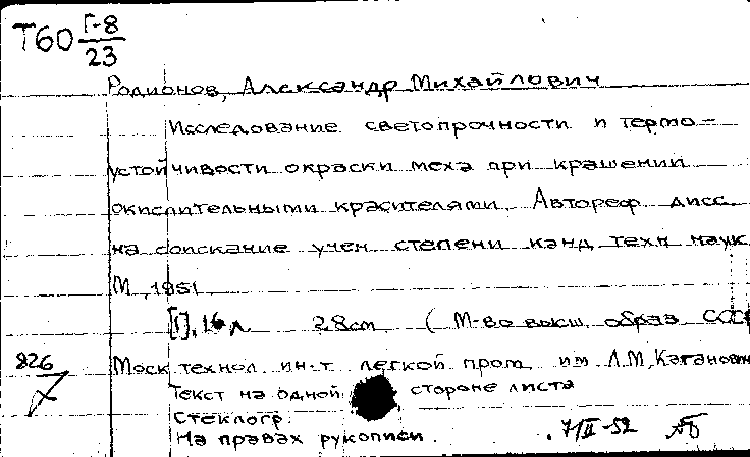 Т60 Г-8
23
Родионов, Александр Михайлович
Исследование светопрочности и термо-
устойчивости окраски меха при крашении
окислительными красителями. Автореф. дисс.
на соискание учен. степени канд. техн. наук
М., 1951
[1], 16 л. 28 см. (М-во высш. образ. ССС
826 Моск. технол. ин-т легкой пром. им. Л.М. Каганович
Текст на одной стороне листа
Стеклогр.
На правах рукописи. 7/II-52